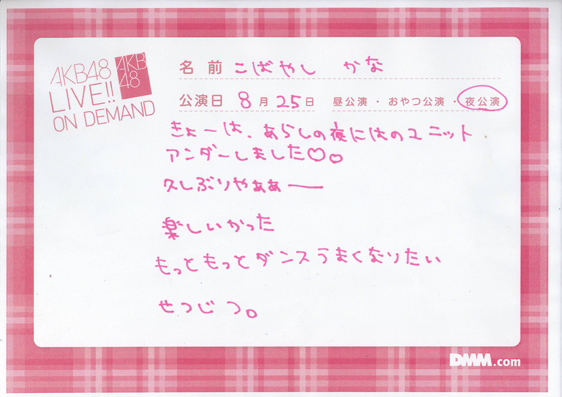 AKB48
LIVE!!
ON DEMAND
AKB
48
名前 こばやし かな
公演日 8月25日 昼公演・おやつ公演・夜公演
きょーは、あらしの夜にはのユニット
アンダーしました♡♡
久しぶりやぁぁー
楽しいかった
もっともっとダンスうまくなりたい
せつじつ。
DMM.com